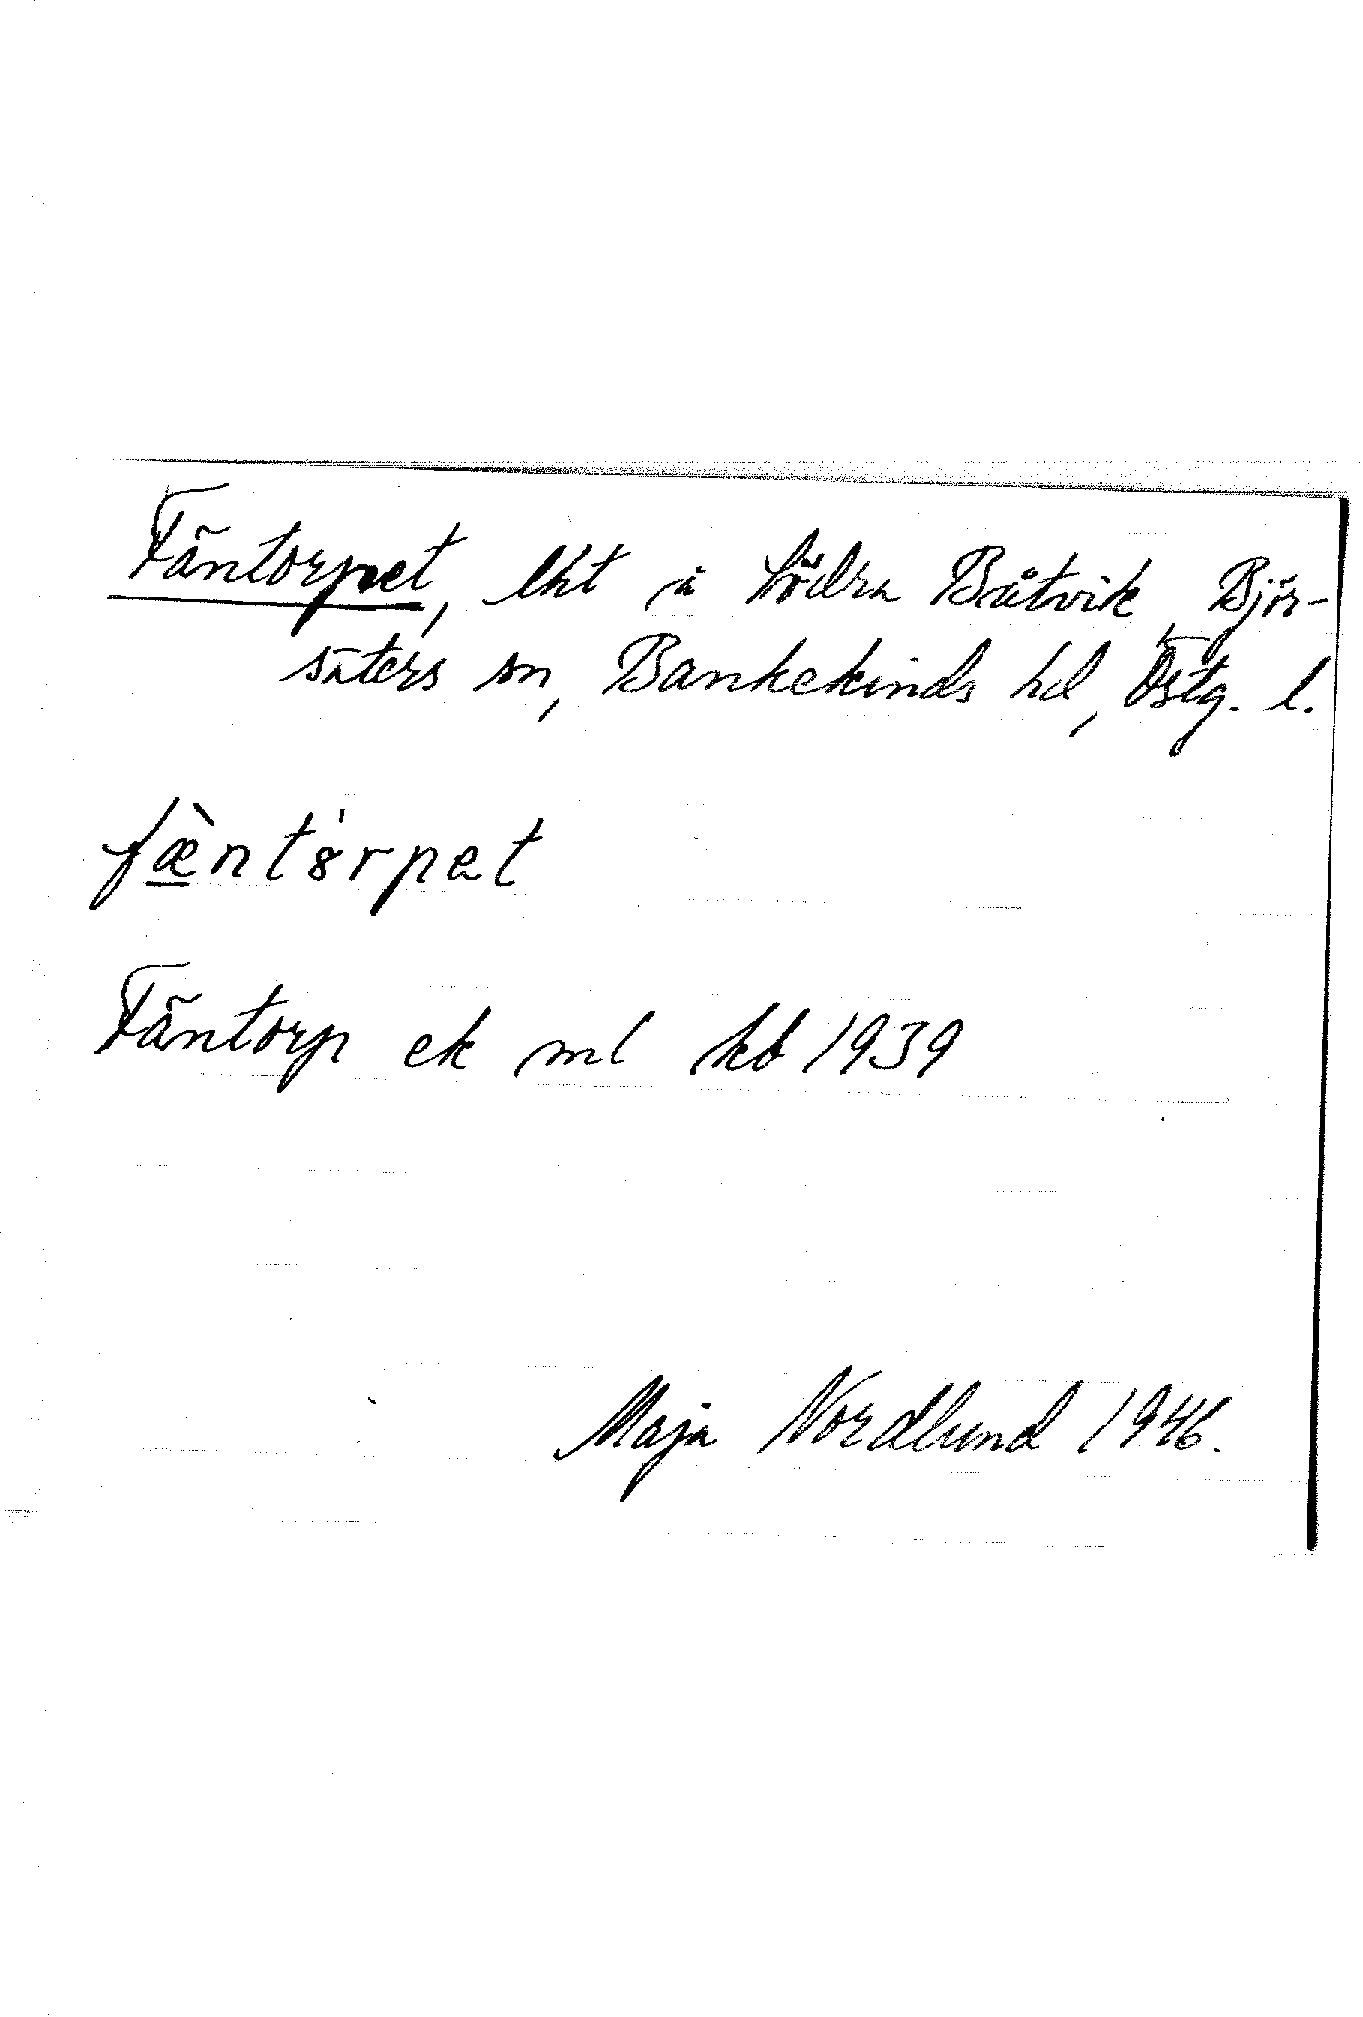 Fäntorpet, lht å Södra Båtvik, Björ-
säters sn, Bankekinds hd, Östg. l.
fæ̀ntȯrpet
Fäntorp ek ml kb 1939
Maja Nordlund 1946.